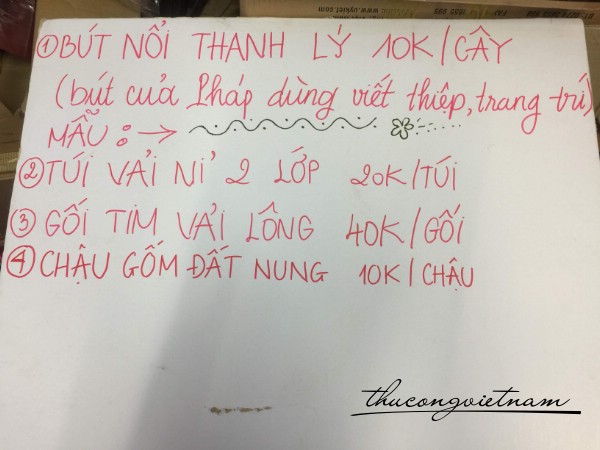 ① BÚT NỔI THANH LÝ 10K/CÂY
(bút của Pháp dùng viết thiệp, trang trí)
MẪU : →
② TÚI VẢI NỈ 2 LỚP 20K/TÚI
③ GỐI TIM VẢI LÔNG 40K/GỐI
④ CHẬU GỐM ĐẤT NUNG 10K/CHẬU
thucongvietnam